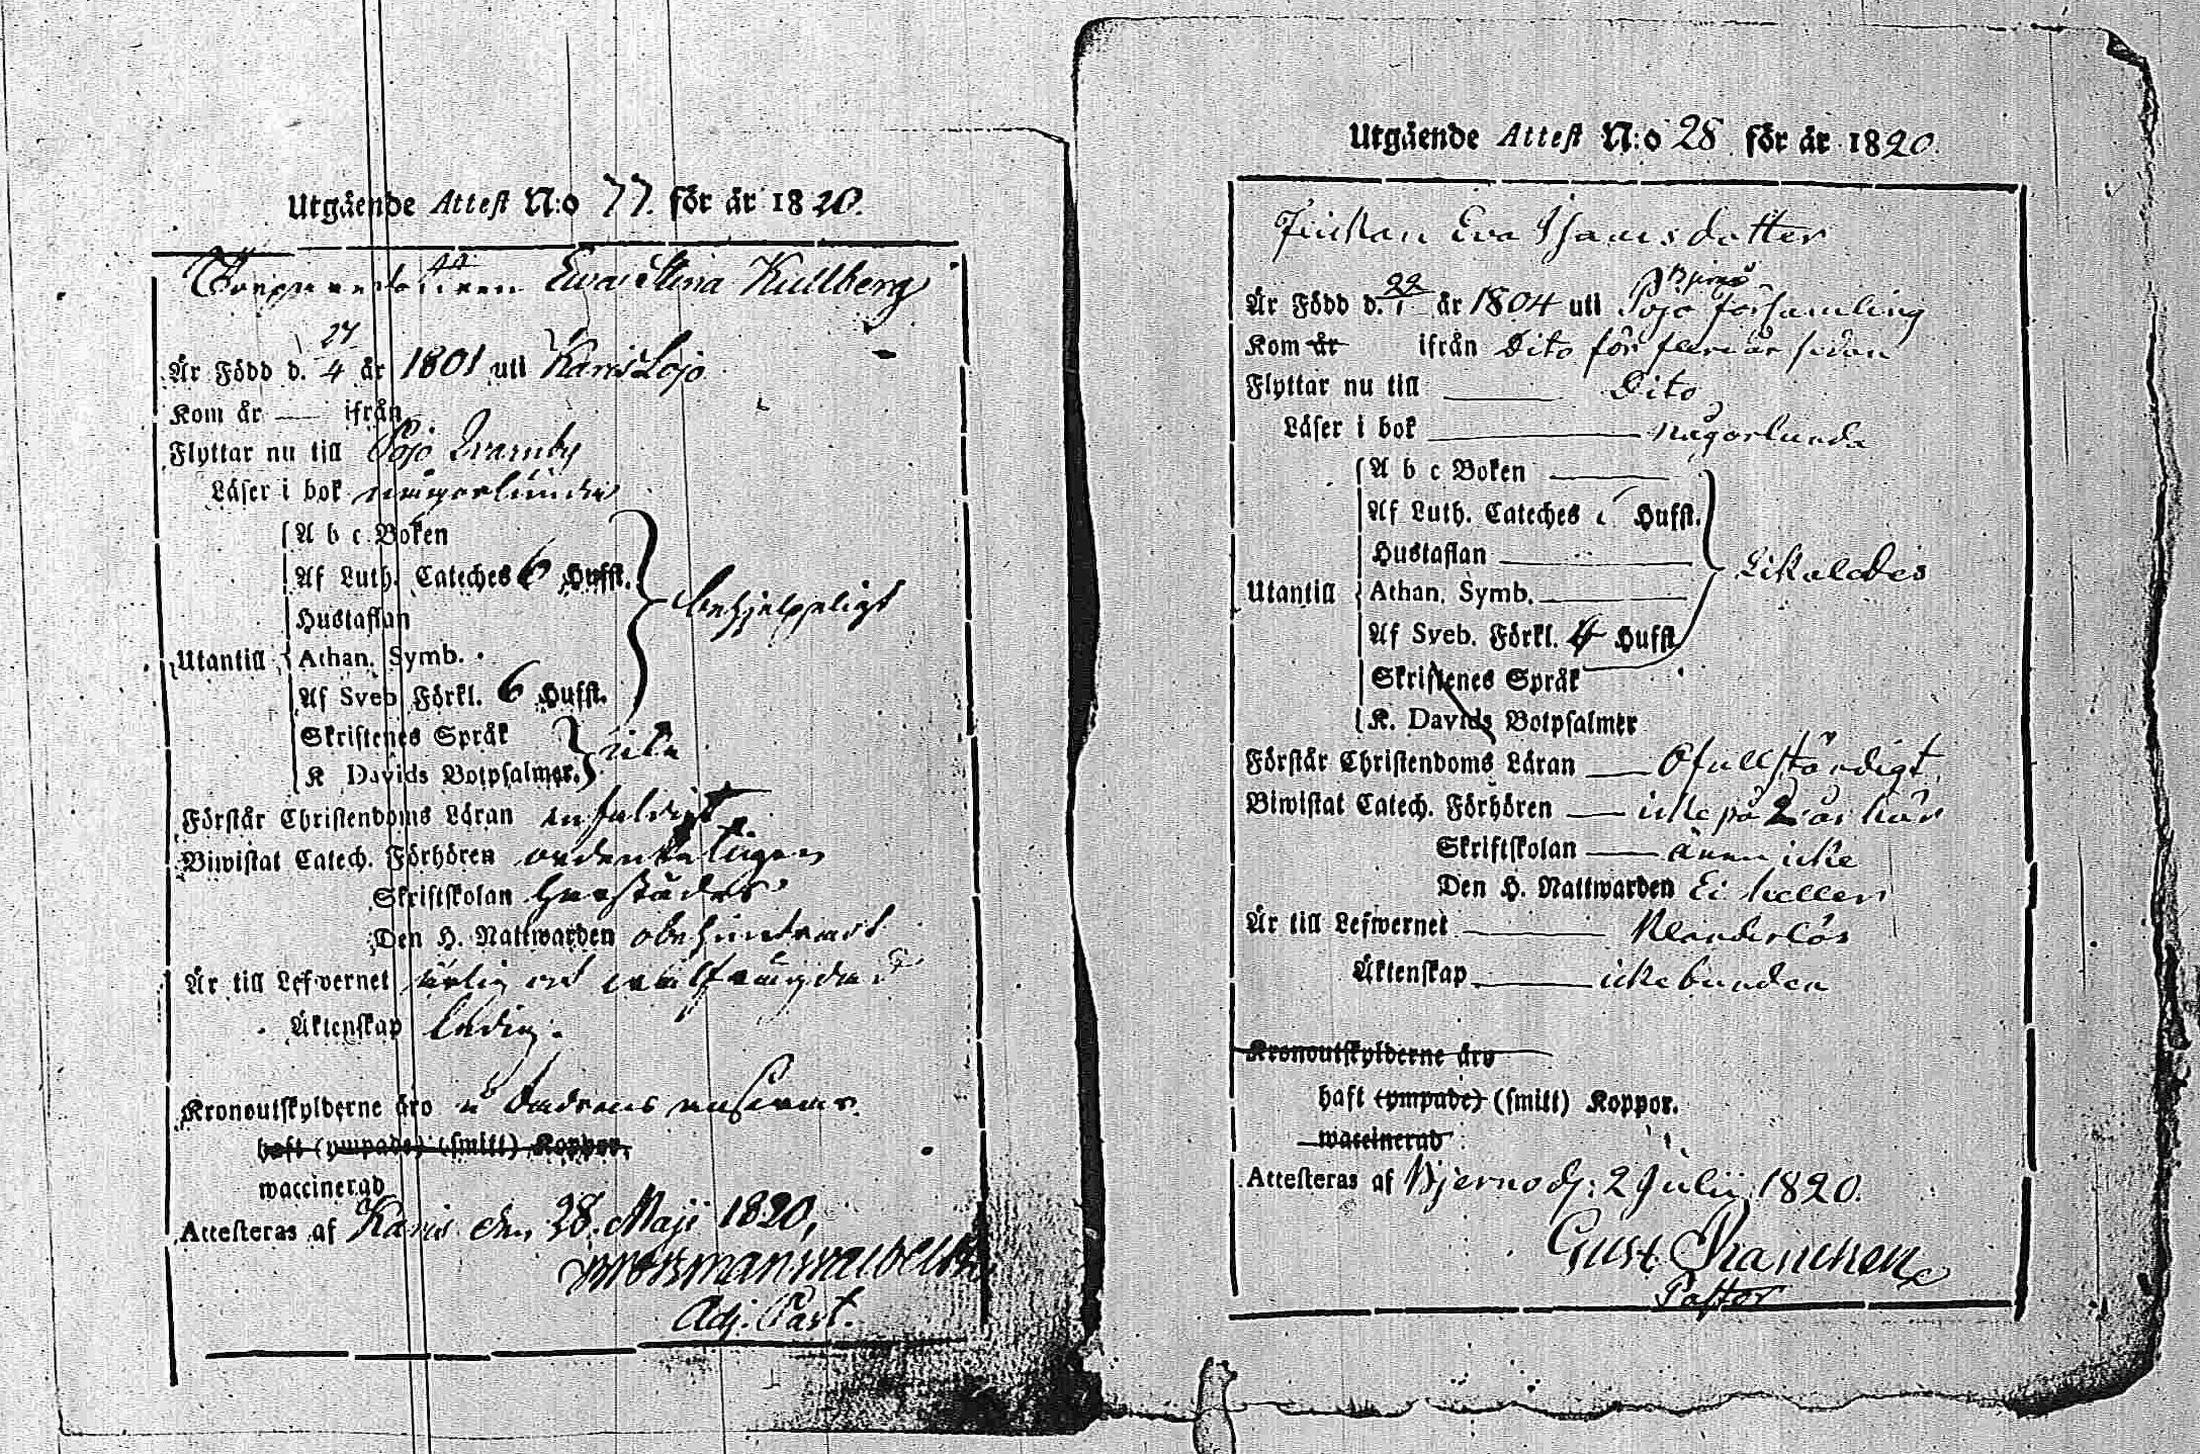 Utgående Attest N:o 77. för år 1820.
Eva Stina Kullberg
Är Född d. 27/4 år 1801 uti Karis Lojo
Kom år — ifrån
Flyttar nu till Pojo Qvarnby
Läser i bok någorlunda
A b c Boken
Af Luth. Cateches 6 Hufst.
Hustaflan
behjelpeligt
Utantill Athan. Symb.
Af Sveb Förkl. 6 Hufst.
Skriftenes Språk
icke
K Davids Botpsalmer.
Förstår Christendoms Läran enfaldigt
Biwistat Catech. Förhören ordenteligen
Skriftskolan härstädes
Den H. Nattwarden obehindradt
Är till Lefwernet ärlig och
Äktenskap ledig.
Kronoutskylderne äro
haft (ympade) (smitt) Koppor.
waccinerad
Attesteras af Karis den 28. Maji 1820,
Adj. Past.
Utgående Attest N:o 28 för år 1820.
Pickan Eva Hansdotter
Är Född d. 22/1 år 1804 uti Pojo församling
Bjerno
Kom år ifrån Dito för få år sedan
Flyttar nu till — Dito
Läser i bok — någorlunda
A b c Boken —
Af Luth. Cateches Hufst.
Hustaflan —
Likaledes
Utantill Athan. Symb. —
Af Sveb. Förkl. 4 Hufst
Skriftenes Språk
K. Davids Botpsalmer
Förstår Christendoms Läran — Ofullständigt
Biwistat Catech. Förhören — icke på 2 år här
Skriftskolan — även icke
Den H. Nattwarden Ei heller
Är till Lefwernet — Klanderlös
Äktenskap — icke bunden
Kronoutskylderne äro
haft (ympade) (smitt) Koppor.
waccinerad
Attesteras af Bjerno d: 2 Julii 1820.
Gust
Pastor